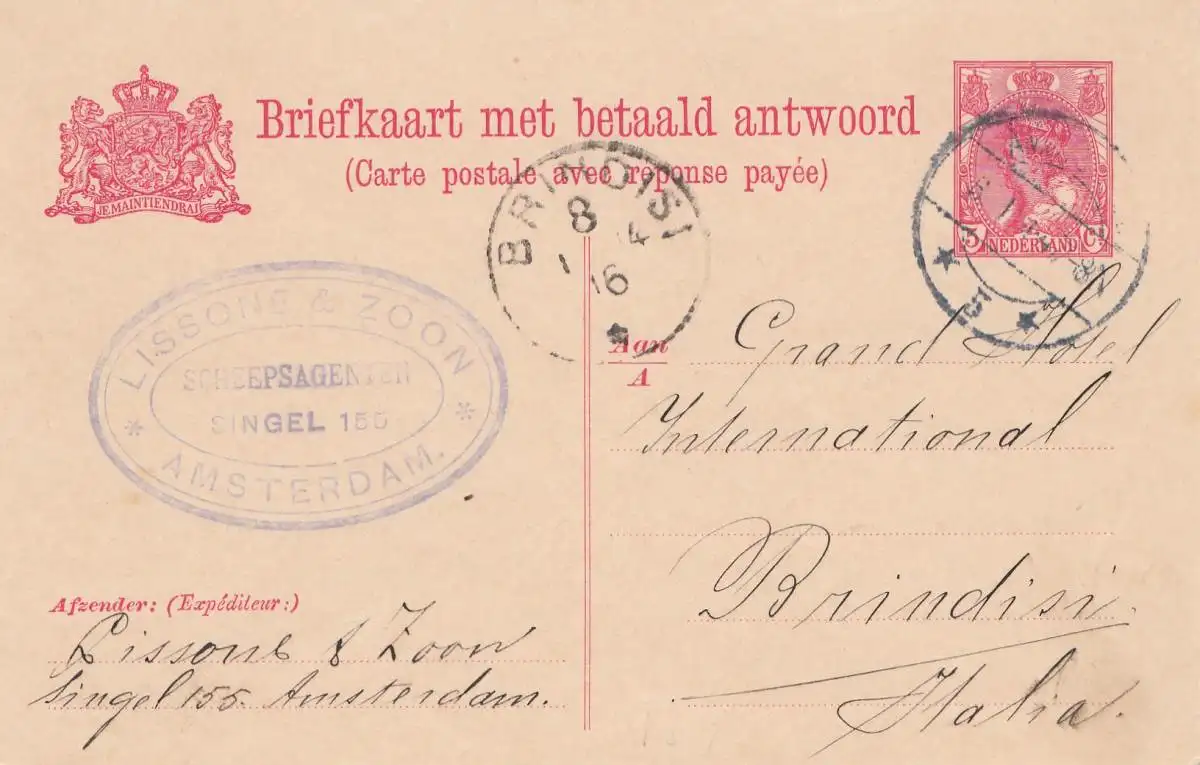 Briefkaart met betaald antwoord
(Carte postale avec réponse payée)
JE MAINTIENDRAI
5 Ct
NEDERLAND
BRINDISI
8
16
LISSONE & ZOON
SCHEEPSAGENTEN
SINGEL 155
AMSTERDAM.
Aan
A
Grand Hotel
International
Brindisi.
Italia.
Afzender: (Expéditeur:)
Lissone & Zoon
Singel 155. Amsterdam.